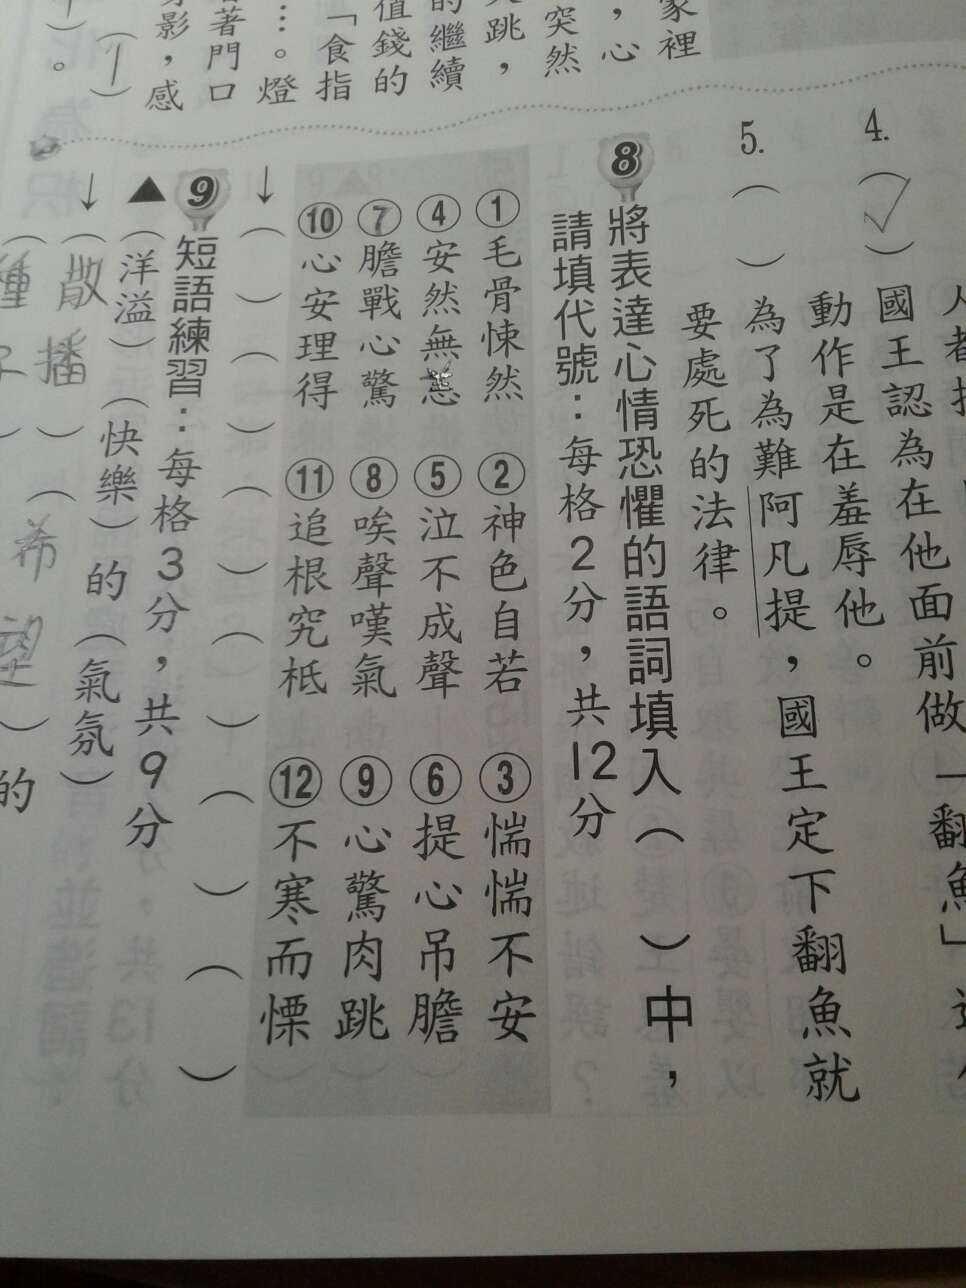 家裡
，心
突然
跳，
的繼續
值錢的
「食指
…。燈
著門口
影，感
4.（✓）國王認為在他面前做「翻魚」
動作是在羞辱他。
5.（ ）為了為難阿凡提，國王定下翻魚就
要處死的法律。
8 將表達心情恐懼的語詞填入（ ）中，
請填代號：每格2分，共12分
①毛骨悚然 ②神色自若 ③惴惴不安
④安然無恙 ⑤泣不成聲 ⑥提心吊膽
⑦膽戰心驚 ⑧唉聲嘆氣 ⑨心驚肉跳
⑩心安理得 ⑪追根究柢 ⑫不寒而慄
↓（ ）（ ）（ ）（ ）（ ）（ ）
9 短語練習：每格3分，共9分
▲（洋溢）（快樂）的（氣氛）
↓（散播）（希望）的
（種子）